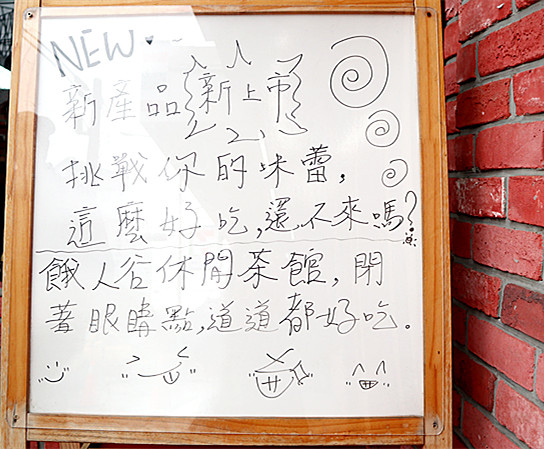 NEW
新產品新上市
挑戰你的味蕾,
這麼好吃,還不來嗎?
餓人谷休閒茶館,閉
著眼睛點,道道都好吃。